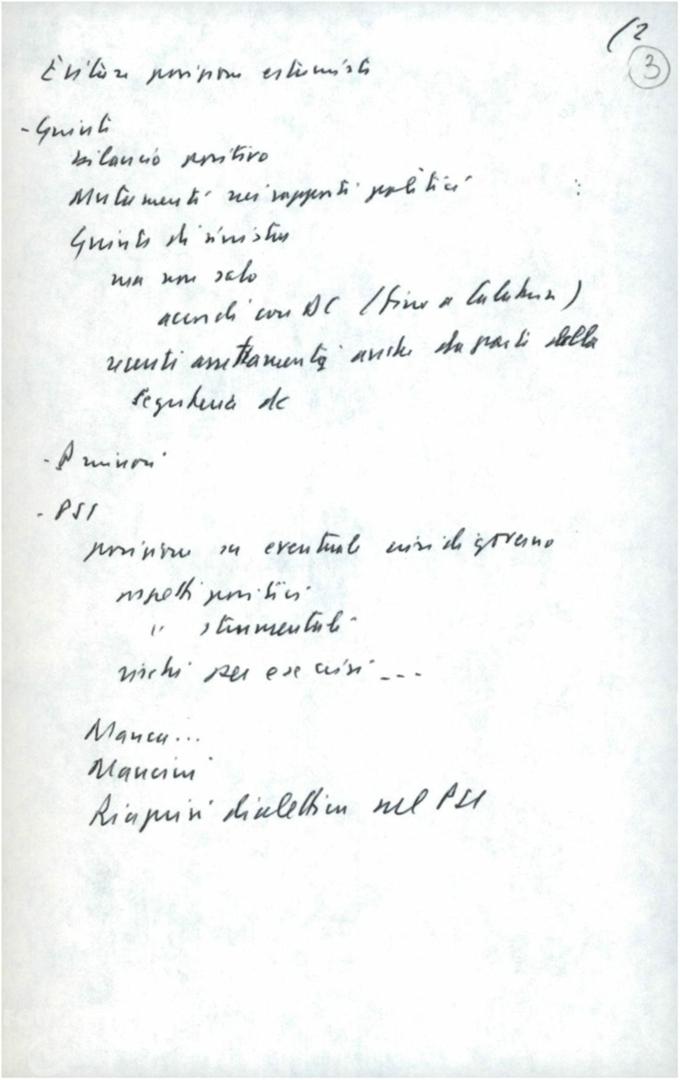 (2
3
Evitare posizione estremista
- Giunte
bilancio positivo
Mutamenti nei rapporti politici
Giunte di sinistra
ma non solo
accordi con DC (fino a Calabria)
recenti anche da parte della
segreteria dc
- P minori
- PSI
posizione su eventuale crisi di governo
aspetti positivi
" strumentali
rischi per es crisi ---
Manca...
Mancini
Riaprirsi dialettica nel PSI